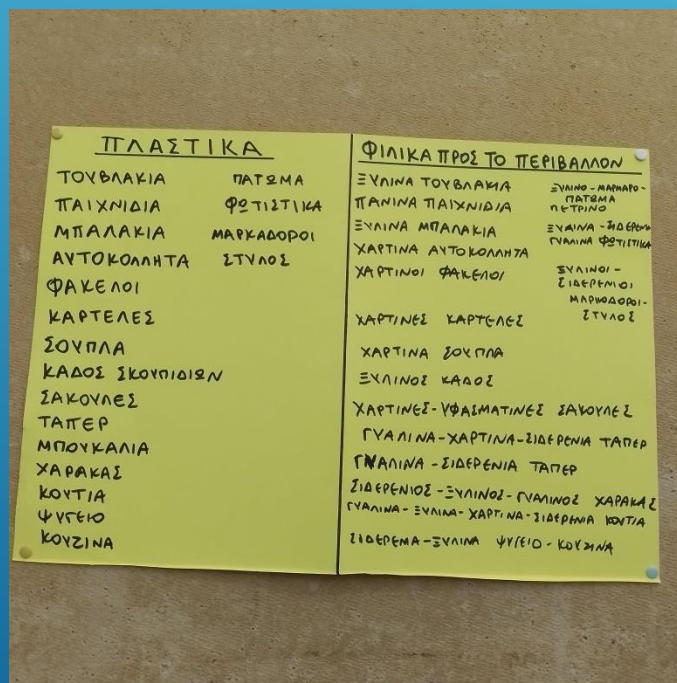 ΠΛΑΣΤΙΚΑ
ΤΟΥΒΛΑΚΙΑ ΠΑΤΩΜΑ
ΠΑΙΧΝΙΔΙΑ ΦΩΤΙΣΤΙΚΑ
ΜΠΑΛΑΚΙΑ ΜΑΡΚΑΔΟΡΟΙ
ΑΥΤΟΚΟΛΛΗΤΑ ΣΤΥΛΟΣ
ΦΑΚΕΛΟΙ
ΚΑΡΤΕΛΕΣ
ΣΟΥΠΛΑ
ΚΑΔΟΣ ΣΚΟΥΠΙΔΙΩΝ
ΣΑΚΟΥΛΕΣ
ΤΑΠΕΡ
ΜΠΟΥΚΑΛΙΑ
ΧΑΡΑΚΑΣ
ΚΟΥΤΙΑ
ΨΥΓΕΙΟ
ΚΟΥΖΙΝΑ
ΦΙΛΙΚΑ ΠΡΟΣ ΤΟ ΠΕΡΙΒΑΛΛΟΝ
ΞΥΛΙΝΑ ΤΟΥΒΛΑΚΙΑ
ΠΑΝΙΝΑ ΠΑΙΧΝΙΔΙΑ
ΞΥΛΙΝΑ ΜΠΑΛΑΚΙΑ
ΧΑΡΤΙΝΑ ΑΥΤΟΚΟΛΛΗΤΑ
ΧΑΡΤΙΝΟΙ ΦΑΚΕΛΟΙ
ΧΑΡΤΙΝΕΣ ΚΑΡΤΕΛΕΣ
ΧΑΡΤΙΝΑ ΣΟΥΠΛΑ
ΞΥΛΙΝΟΣ ΚΑΔΟΣ
ΧΑΡΤΙΝΕΣ-ΥΦΑΣΜΑΤΙΝΕΣ ΣΑΚΟΥΛΕΣ
ΓΥΑΛΙΝΑ-ΧΑΡΤΙΝΑ-ΣΙΔΕΡΕΝΙΑ ΤΑΠΕΡ
ΓΥΑΛΙΝΑ-ΣΙΔΕΡΕΝΙΑ ΤΑΠΕΡ
ΣΙΔΕΡΕΝΙΟΣ-ΞΥΛΙΝΟΣ-ΓΥΑΛΙΝΟΣ ΧΑΡΑΚΑΣ
ΓΥΑΛΙΝΑ-ΞΥΛΙΝΑ-ΧΑΡΤΙΝΑ-ΣΙΔΕΡΕΝΙΑ ΚΟΥΤΙΑ
ΣΙΔΕΡΕΜΑ-ΞΥΛΙΝΑ ΨΥΓΕΙΟ-ΚΟΥΖΙΝΑ
ΞΥΛΙΝΟ-ΜΑΡΜΑΡΟ-
ΠΑΤΩΜΑ
ΠΕΤΡΙΝΟ
ΞΥΛΙΝΑ-ΣΙΔΕΡΕΝΙ
ΓΥΑΛΙΝΑ ΦΩΤΙΣΤΙΚΑ
ΞΥΛΙΝΟΙ-
ΣΙΔΕΡΕΝΙΟΙ
ΜΑΡΚΟΔΟΡΟΙ-
ΣΤΥΛΟΣ